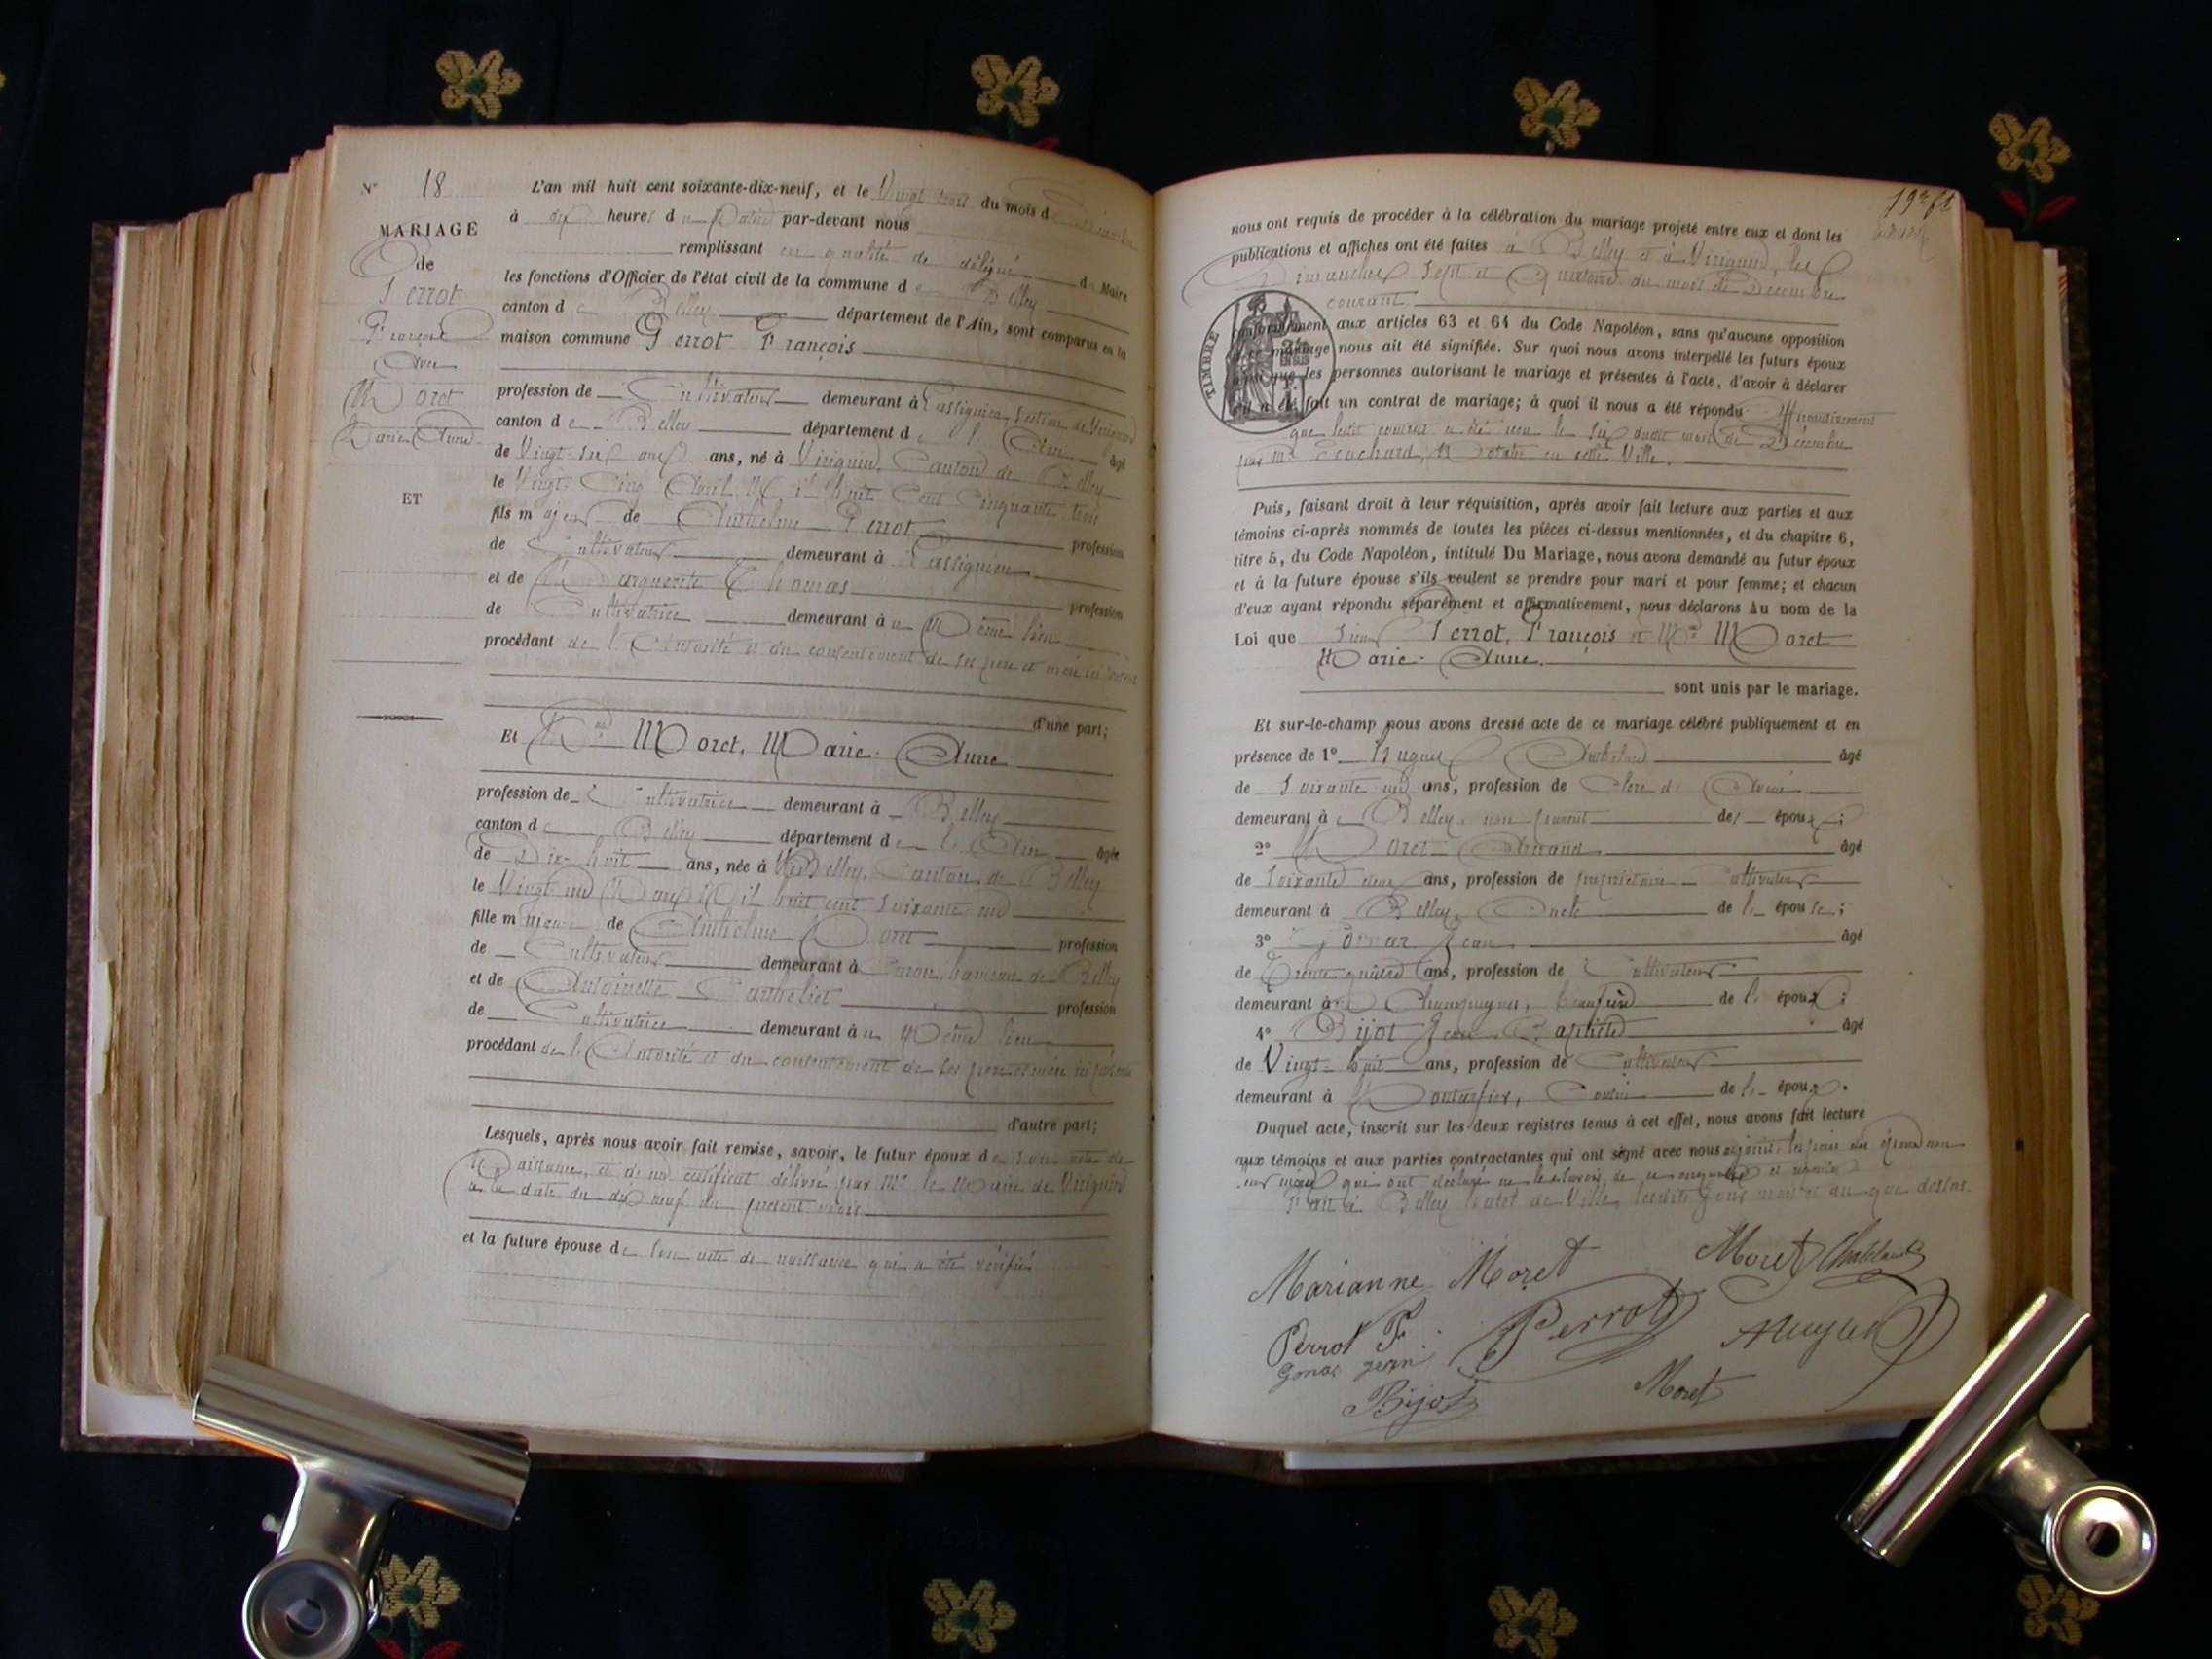 N° 18
MARIAGE
de
Perrot
François
Avec
Moret
Marie Anne
ET
L'an mil huit cent soixante-dix-neuf, et le Vingt trois du mois de Décembre
à dix heures du Matin par-devant nous
remplissant en qualité de délégué du Maire
les fonctions d'Officier de l'état civil de la commune de Belley
canton de Belley département de l'Ain, sont comparus en la
maison commune Perrot François
profession de Cultivateur demeurant à Passignieu, section de Virignin
canton de Belley département de l'Ain âgé
de Vingt-six ans ans, né à Virignin, Canton de Belley
le Vingt-Cinq Avril Mil huit Cent Cinquante trois
fils majeur de Anthelme Perrot profession
de Cultivateur demeurant à Passignieu
et de Marguerite Thomas profession
de Cultivatrice demeurant au Même lieu
procédant de l'Autorité et du consentement de ses père et mère ici présents
d'une part;
Et Moret, Marie-Anne
profession de Cultivatrice demeurant à Belley
canton de Belley département de l'Ain âgée
de Dix-huit ans, née à Belley, Canton de Belley
le Vingt-un Mars Mil huit cent soixante un
fille mineure de Anthelme Moret profession
de Cultivateur demeurant à hameau de Belley
et de Antoinette profession
de Cultivatrice demeurant au Même lieu
procédant de l'Autorité et du consentement de ses père et mère ici présents
d'autre part;
Lesquels, après nous avoir fait remise, savoir, le futur époux de son acte de
Naissance, et d'un certificat délivré par Mr le Maire de Virignin
à la date du dix neuf du présent mois
et la future épouse de son acte de naissance qui a été vérifié
nous ont requis de procéder à la célébration du mariage projeté entre eux et dont les
publications et affiches ont été faites à Belley et à Virignin, les
Dimanches sept et Quatorze du mois de Décembre
courant
TIMBRE
conformément aux articles 63 et 64 du Code Napoléon, sans qu'aucune opposition
à ce mariage nous ait été signifiée. Sur quoi nous avons interpellé les futurs époux
ainsi que les personnes autorisant le mariage et présentes à l'acte, d'avoir à déclarer
s'il a été fait un contrat de mariage; à quoi il nous a été répondu Affirmativement
que ledit contrat a été reçu le six dudit mois de Décembre
par Me Notaire en cette Ville.
Puis, faisant droit à leur réquisition, après avoir fait lecture aux parties et aux
témoins ci-après nommés de toutes les pièces ci-dessus mentionnées, et du chapitre 6,
titre 5, du Code Napoléon, intitulé Du Mariage, nous avons demandé au futur époux
et à la future épouse s'ils veulent se prendre pour mari et pour femme; et chacun
d'eux ayant répondu séparément et affirmativement, nous déclarons Au nom de la
Loi que Sieur Perrot, François et Moret
Marie-Anne
sont unis par le mariage.
Et sur-le-champ nous avons dressé acte de ce mariage célébré publiquement et en
présence de 1° Hugues Anthelme âgé
de Soixante ans, profession de Clerc d'Avoué
demeurant à Belley, non parent des époux;
2° Moret âgé
de Soixante deux ans, profession de propriétaire Cultivateur
demeurant à Belley, Oncle de l'épouse;
3° Jean âgé
de Trente quatre ans, profession de Cultivateur
demeurant à beau frère de l'époux;
4° Bijot Jean Baptiste âgé
de Vingt-huit ans, profession de Cultivateur
demeurant à Cousin de l'époux.
Duquel acte, inscrit sur les deux registres tenus à cet effet, nous avons fait lecture
aux témoins et aux parties contractantes qui ont signé avec nous
qui ont déclaré ne le savoir de ce
Fait à Belley hotel de Ville, lesdits jours mois et an que dessus.
Marianne Moret
Moret
Perrot F.
Perrot
Bijot
Moret